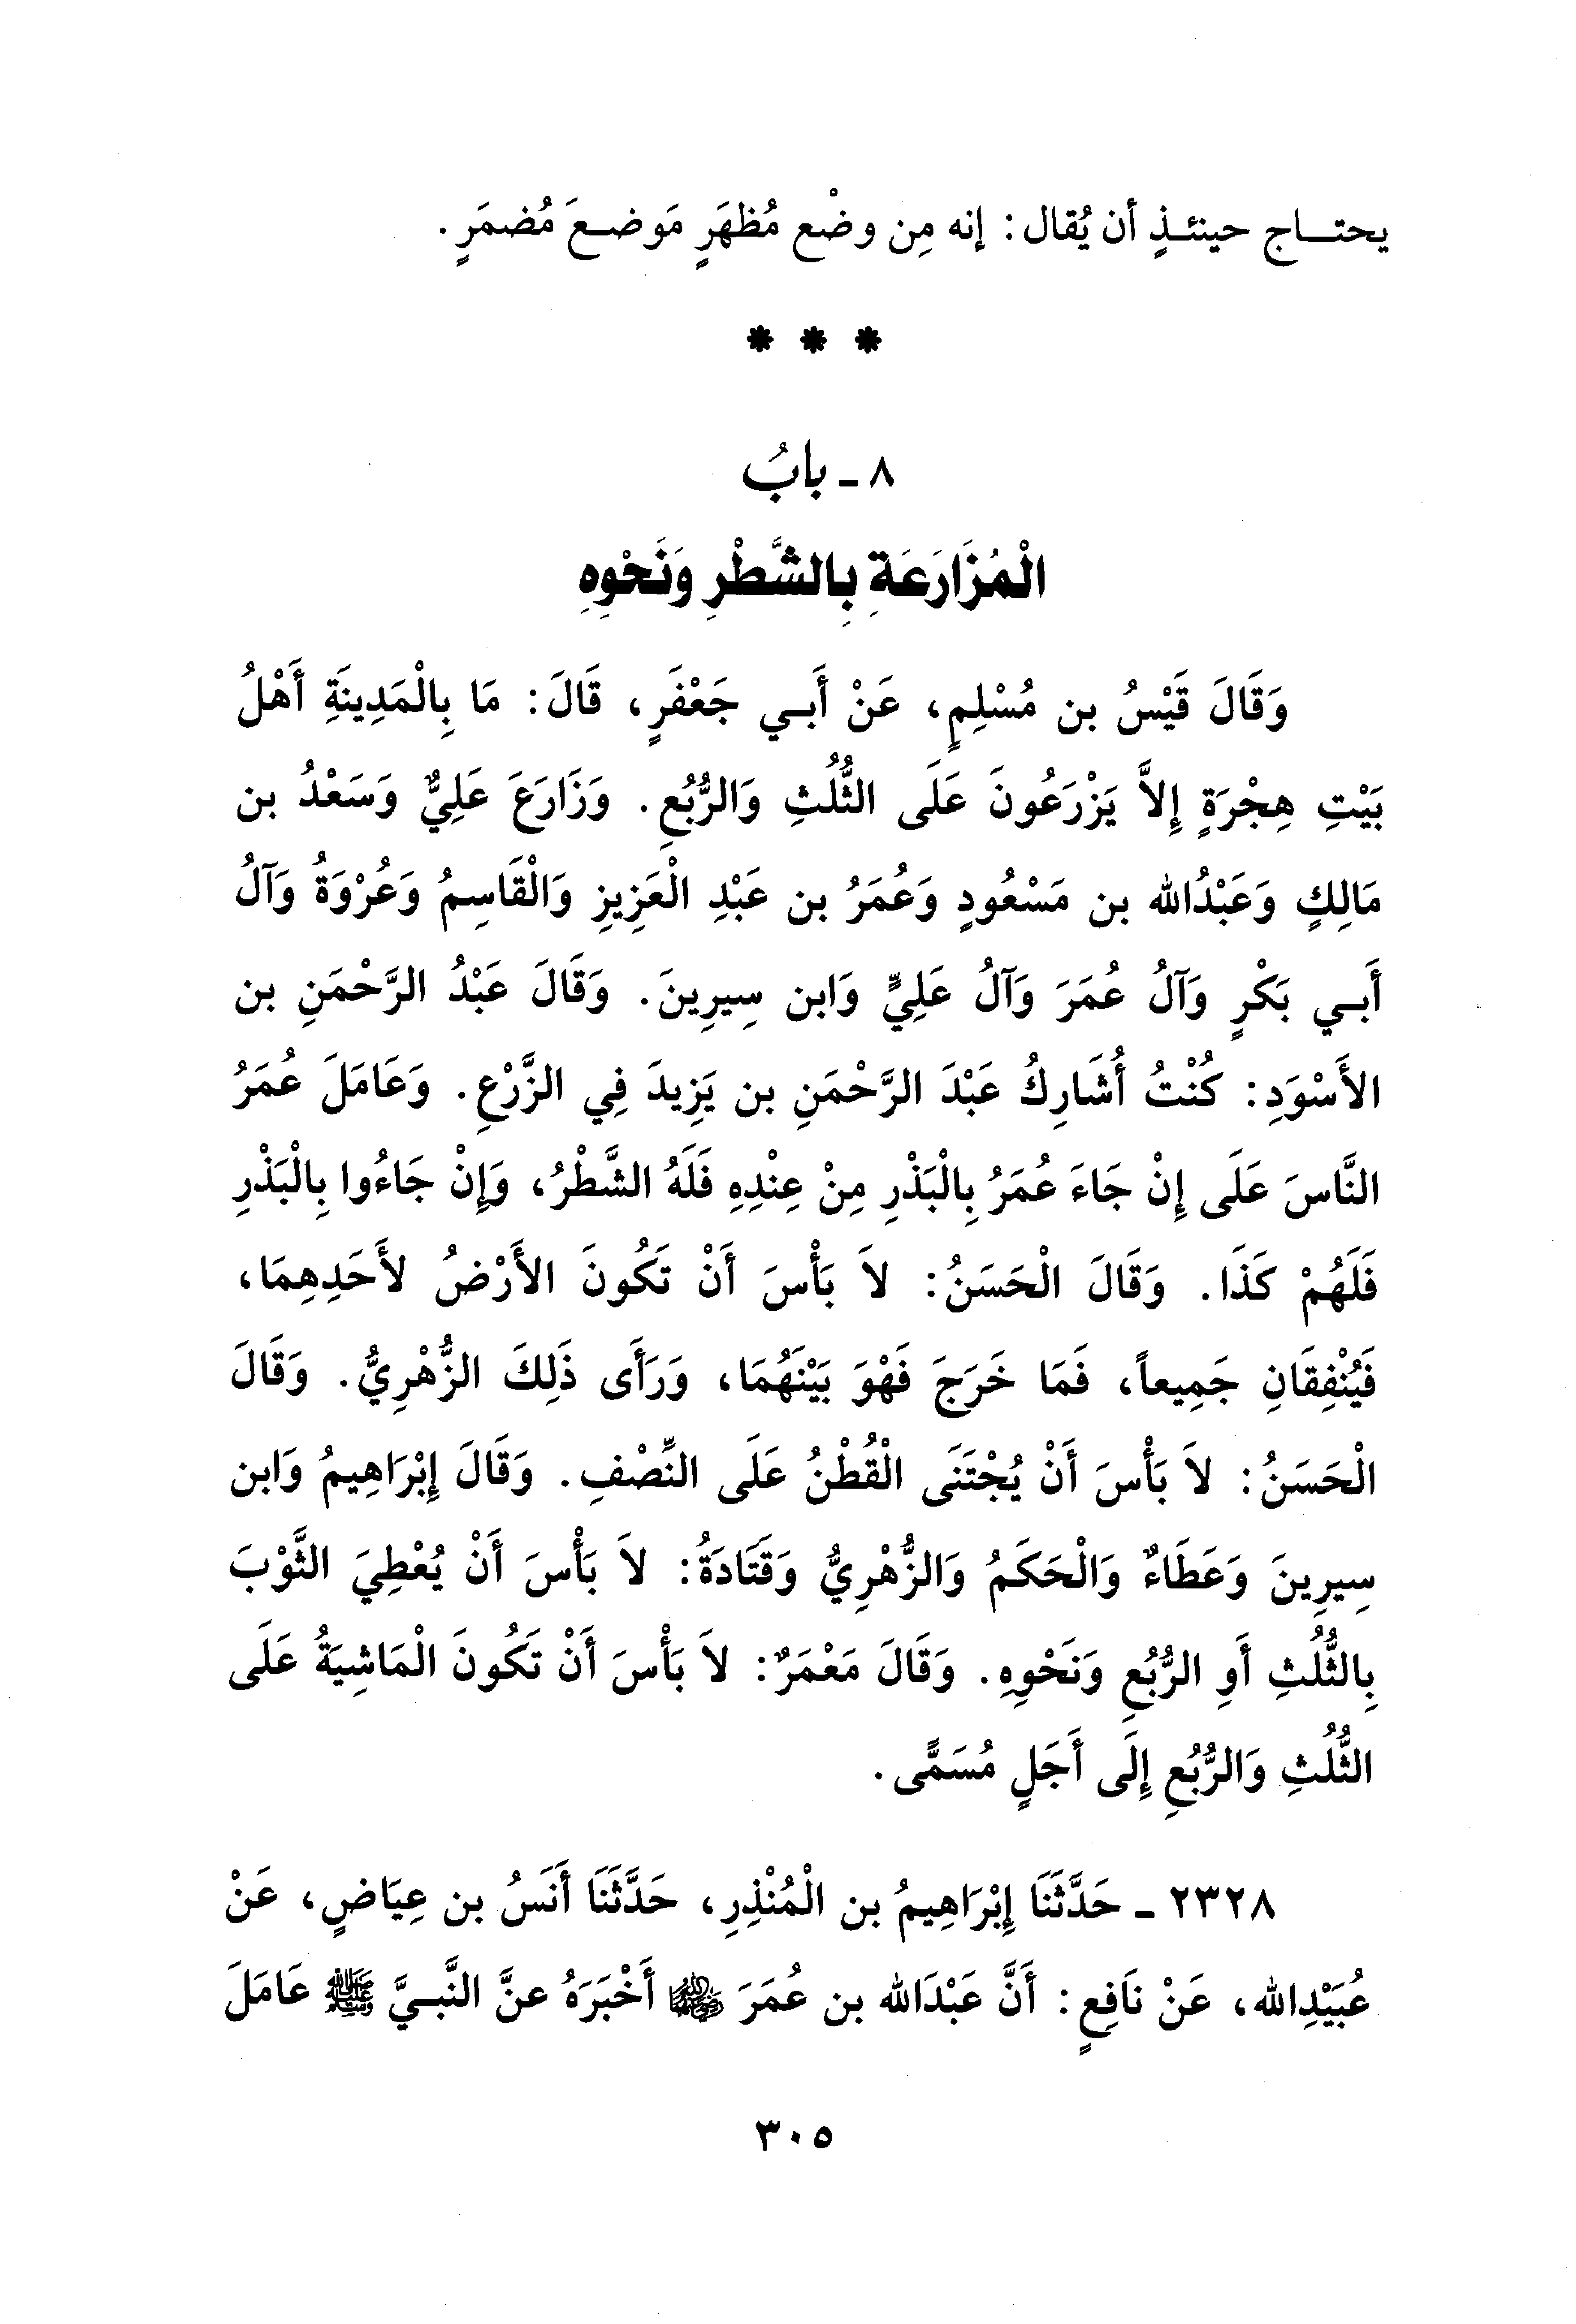 يحتـــاج حينئـذٍ أن يُقال: إنه مِن وضْع مُظهَرٍ مَوضـعَ مُضمَرٍ.
* * *
٨ - بابُ
الْمُزَارَعَةِ بِالشَّطْرِ وَنَحْوِهِ
وَقَالَ قَيْسُ بن مُسْلِمٍ، عَنْ أَبـي جَعْفَرٍ، قَالَ: مَا بِالْمَدِينَةِ أَهْلُ
بَيْتِ هِجْرَةٍ إِلاَّ يَزْرَعُونَ عَلَى الثُّلُثِ وَالرُّبُعِ. وَزَارَعَ عَلِيٌّ وَسَعْدُ بن
مَالِكٍ وَعَبْدُالله بن مَسْعُودٍ وَعُمَرُ بن عَبْدِ الْعَزِيزِ وَالْقَاسِمُ وَعُرْوَةُ وَآلُ
أَبـي بَكْرٍ وَآلُ عُمَرَ وَآلُ عَلِيٍّ وَابن سِيرِينَ. وَقَالَ عَبْدُ الرَّحْمَنِ بن
الأَسْوَدِ: كُنْتُ أُشَارِكُ عَبْدَ الرَّحْمَنِ بن يَزِيدَ فِي الزَّرْعِ. وَعَامَلَ عُمَرُ
النَّاسَ عَلَى إِنْ جَاءَ عُمَرُ بِالْبَذْرِ مِنْ عِنْدِهِ فَلَهُ الشَّطْرُ، وَإِنْ جَاءُوا بِالْبَذْرِ
فَلَهُمْ كَذَا. وَقَالَ الْحَسَنُ: لاَ بَأْسَ أَنْ تَكُونَ الأَرْضُ لأَحَدِهِمَا،
فَيُنْفِقَانِ جَمِيعاً، فَمَا خَرَجَ فَهْوَ بَيْنَهُمَا، وَرَأَى ذَلِكَ الزُّهْرِيُّ. وَقَالَ
الْحَسَنُ: لاَ بَأْسَ أَنْ يُجْتَنَى الْقُطْنُ عَلَى النِّصْفِ. وَقَالَ إِبْرَاهِيمُ وَابن
سِيرِينَ وَعَطَاءٌ وَالْحَكَمُ وَالزُّهْرِيُّ وَقَتَادَةُ: لاَ بَأْسَ أَنْ يُعْطِيَ الثَّوْبَ
بِالثُّلُثِ أَوِ الرُّبُعِ وَنَحْوِهِ. وَقَالَ مَعْمَرٌ: لاَ بَأْسَ أَنْ تَكُونَ الْمَاشِيَةُ عَلَى
الثُّلُثِ وَالرُّبُعِ إِلَى أَجَلٍ مُسَمًّى.
٢٣٢٨ - حَدَّثَنَا إِبْرَاهِيمُ بن الْمُنْذِرِ، حَدَّثَنَا أَنَسُ بن عِيَاضٍ، عَنْ
عُبَيْدِالله، عَنْ نَافِعٍ: أَنَّ عَبْدَالله بن عُمَرَ رضي الله عنهما أَخْبَرَهُ عنَّ النَّبـيَّ ﷺ عَامَلَ
٣٠٥